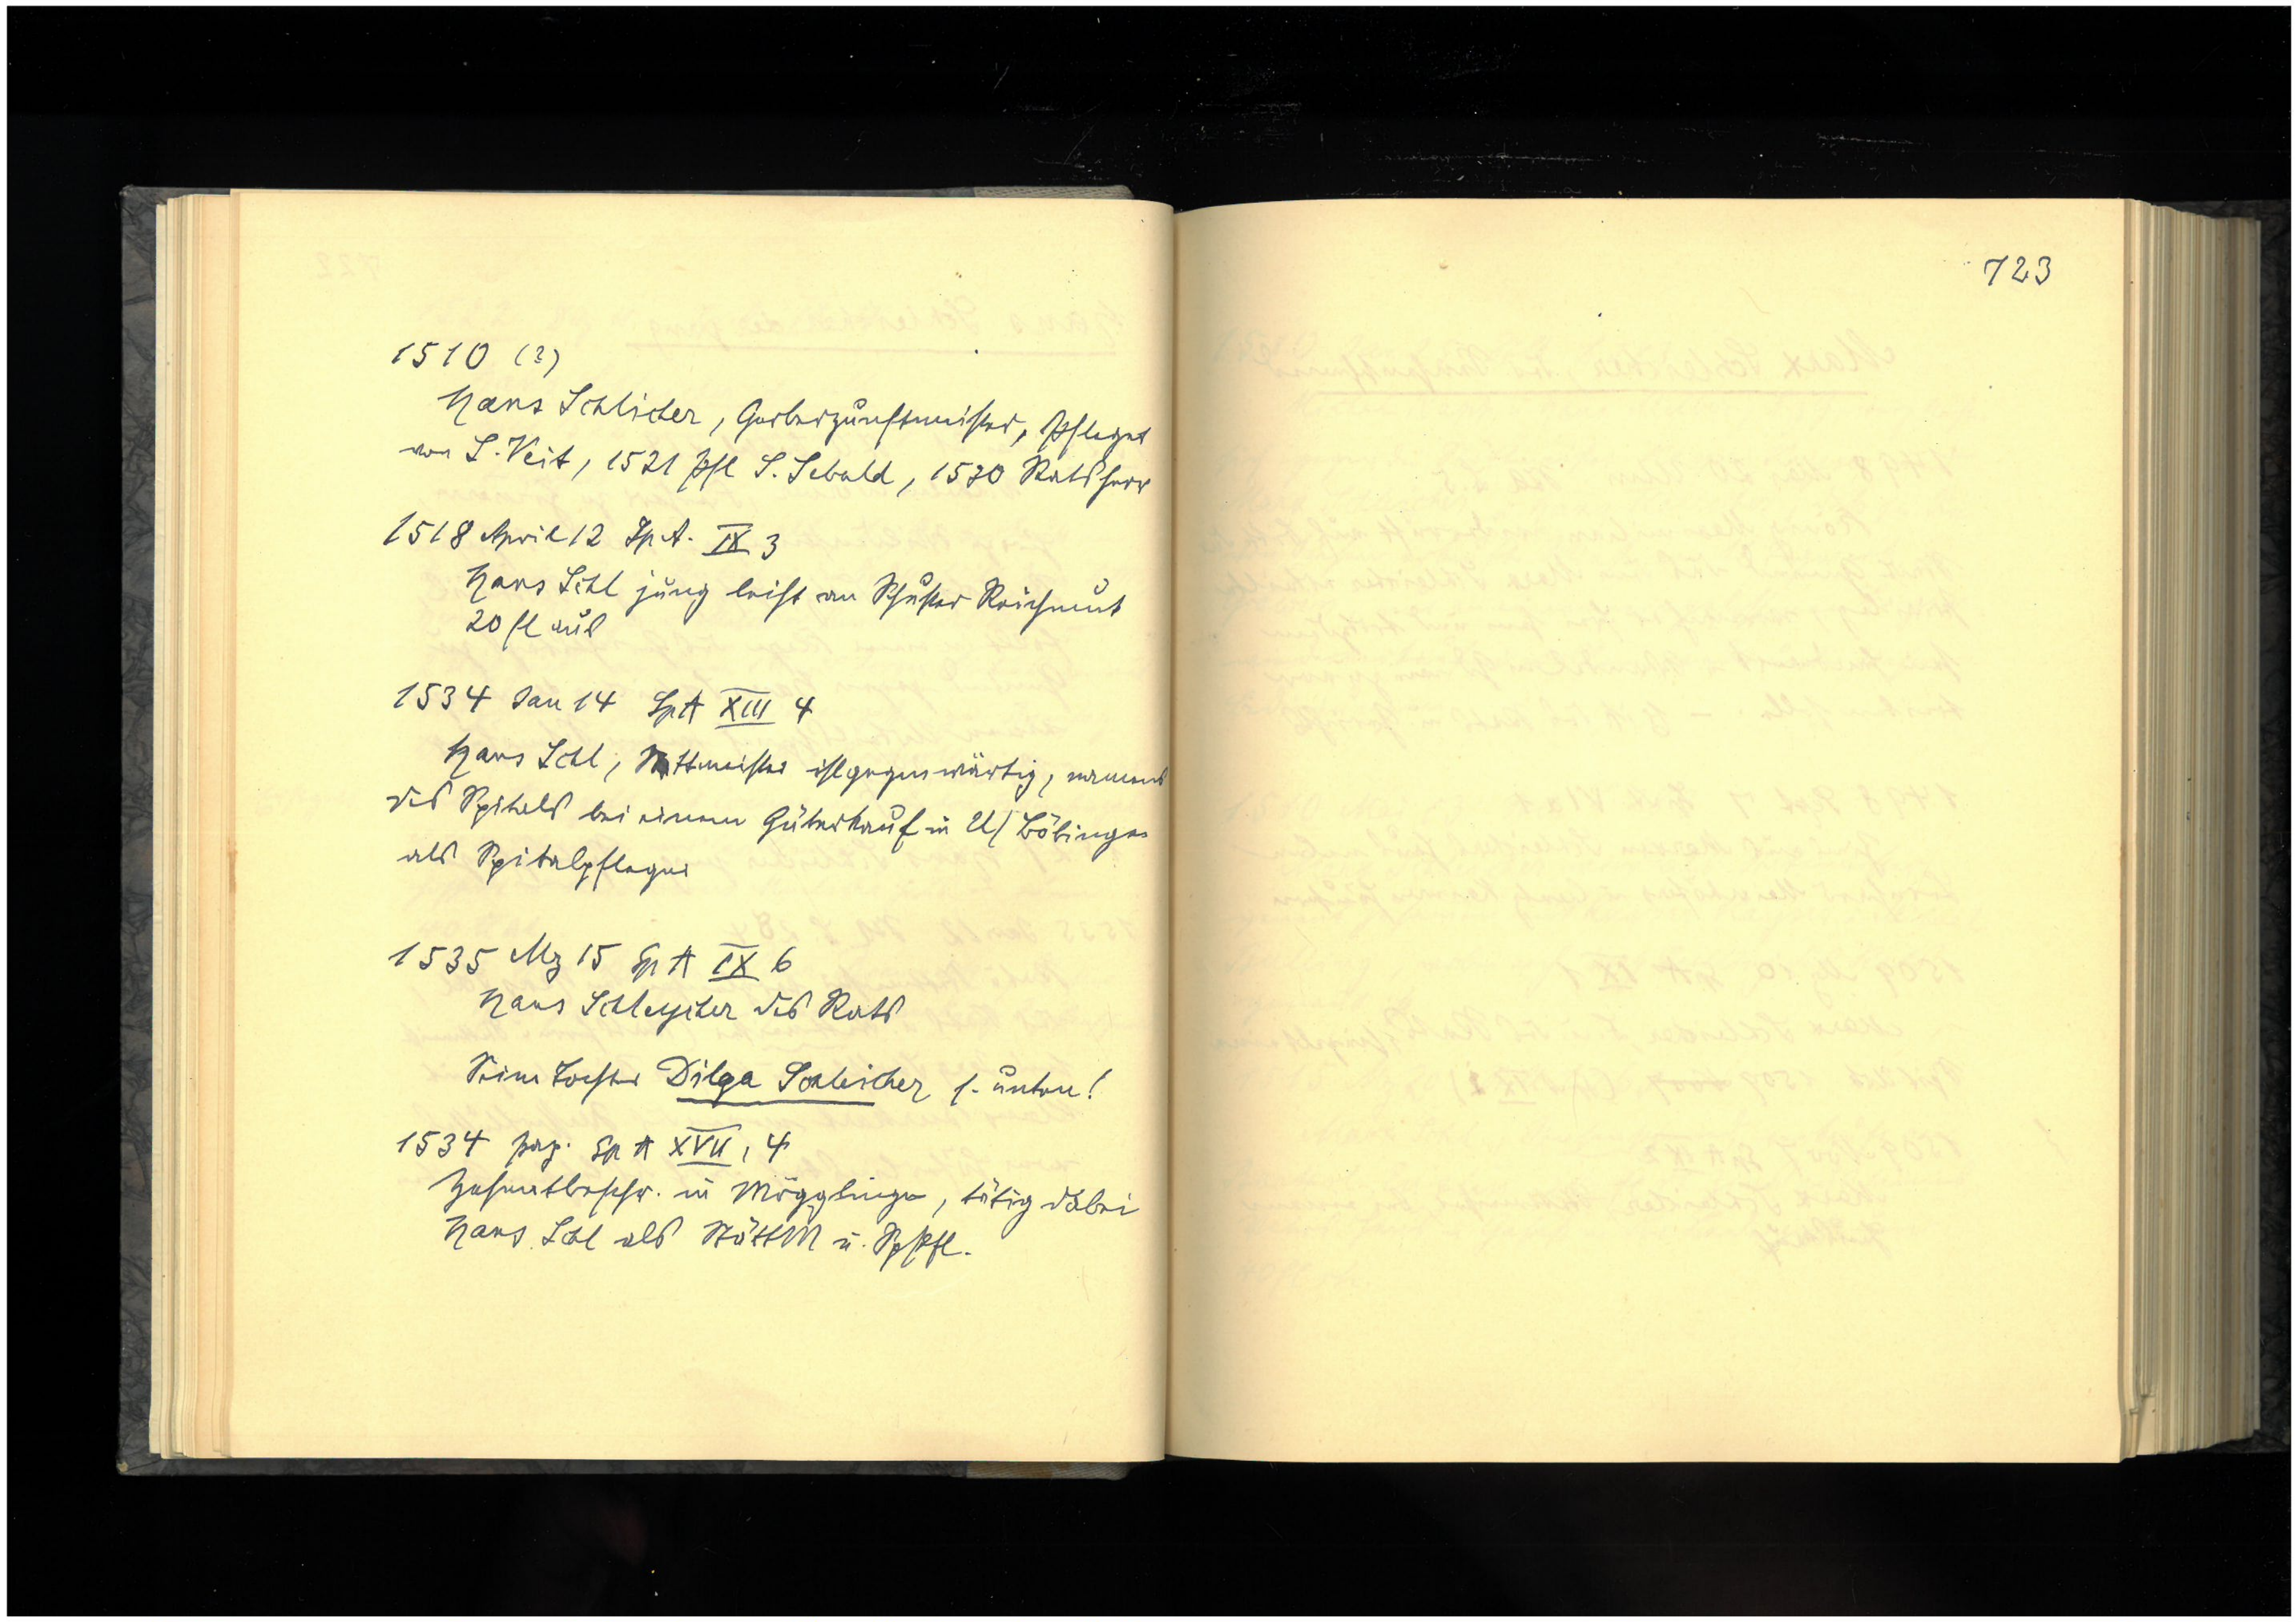 1510 (?)
Hans Schlicher, Gerberzunftmeister, Pfleger
von S. Veit, 1521 Pfl S. Sebald, 1530 Ratsherr
1518 April 12 Sp A. IX 3
Hans Schl jung leiht an Schuster Reichmut
20 fl aus
1534 Jan 14 Sp A XIII 4
Hans Schl, Stettmeister ist gegenwärtig, namens
des Spitals bei einem Güterkauf in U/Böbingen
als Spitalpfleger
1535 Mz 15 Sp A IX 6
Hans Schleycher des Rats
Seine Tochter Dilga Schleicher s. unten!
1534 pag. Sp A XVII, 4
in Mögglingen, tätig dabei
Hans Schl als StättM u. SpPfl.
723